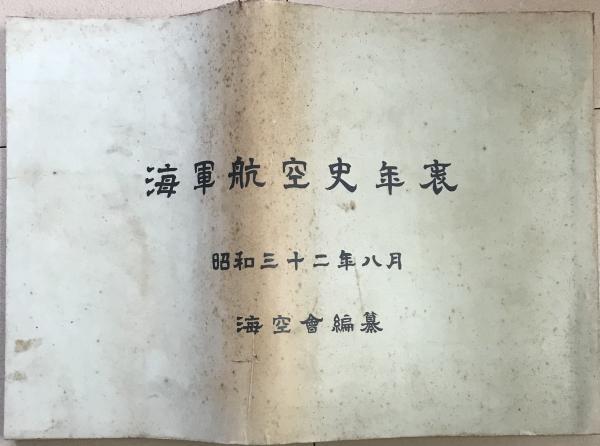 海軍航空史年表
昭和三十二年八月
海空會編纂